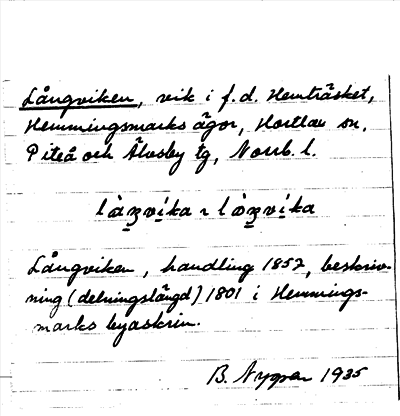 Långviken, vik i f.d. Hemträsket,
Hemmingsmarks ägor, Hortlax sn,
Piteå och Älvsby tg, Norrb. l.
Långviken, handling 1857, beskriv-
ning (delningslängd) 1801 i Hemmings-
marks byaskrin.
B. Nygren 1935